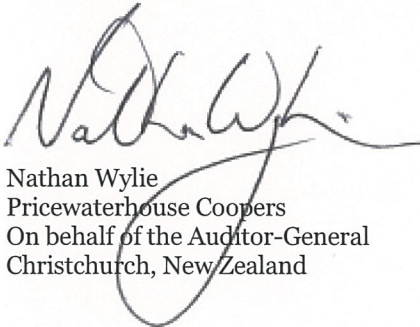 Nathan Wylie
Nathan Wylie
Pricewaterhouse Coopers
On behalf of the Auditor-General
Christchurch, New Zealand